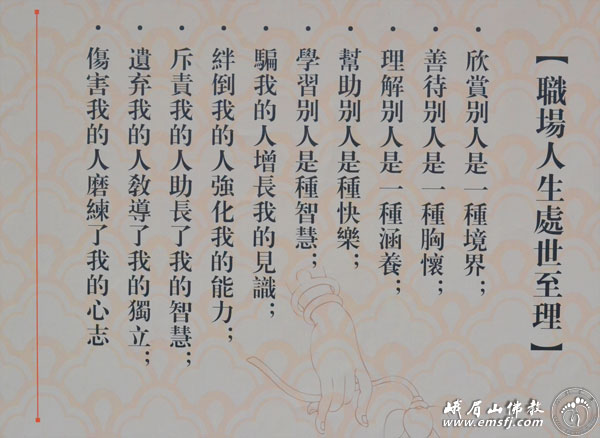 【職場人生處世至理】
• 欣賞别人是一種境界；
• 善待别人是一種胸懷；
• 理解别人是一種涵養；
• 幫助别人是種快樂；
• 學習别人是種智慧；
• 騙我的人增長我的見識；
• 絆倒我的人強化我的能力；
• 斥責我的人助長了我的智慧；
• 遺弃我的人教導了我的獨立；
• 傷害我的人磨練了我的心志
峨眉山佛教
www.emsfj.com